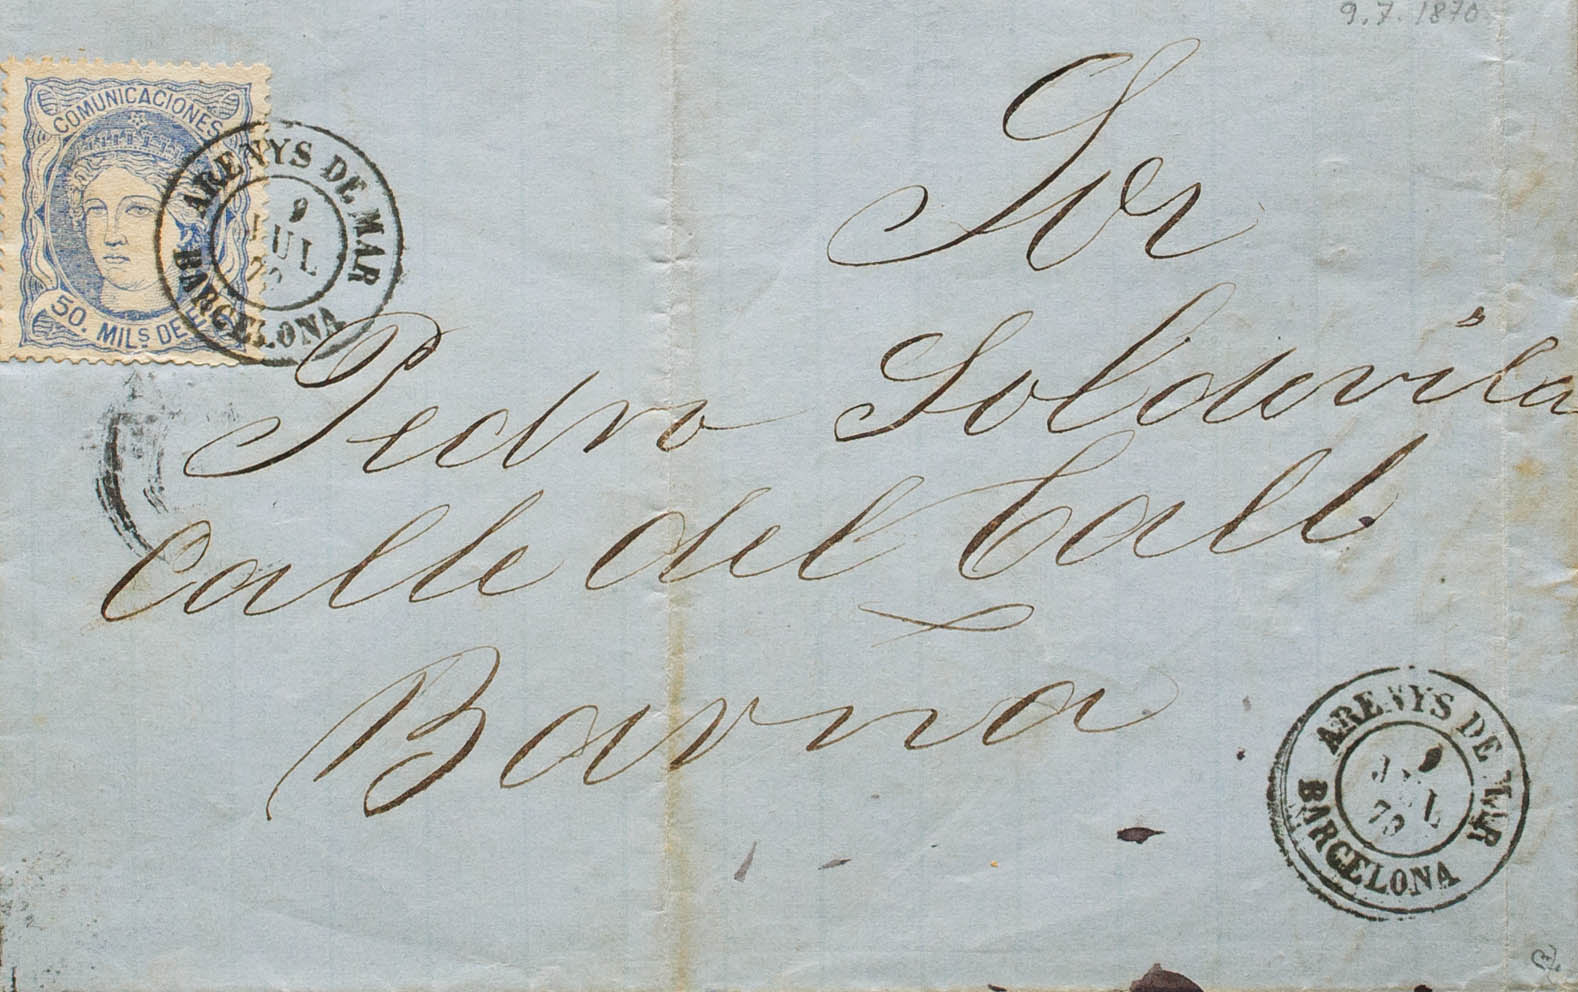 9.7.1870
COMUNICACIONES
50. MILS DE E.
ARENYS DE MAR
9
JUL
70
BARCELONA
Sor
Pedro Soldevila
Calle del Call
Barna
ARENYS DE MAR
9
JUL
70
BARCELONA